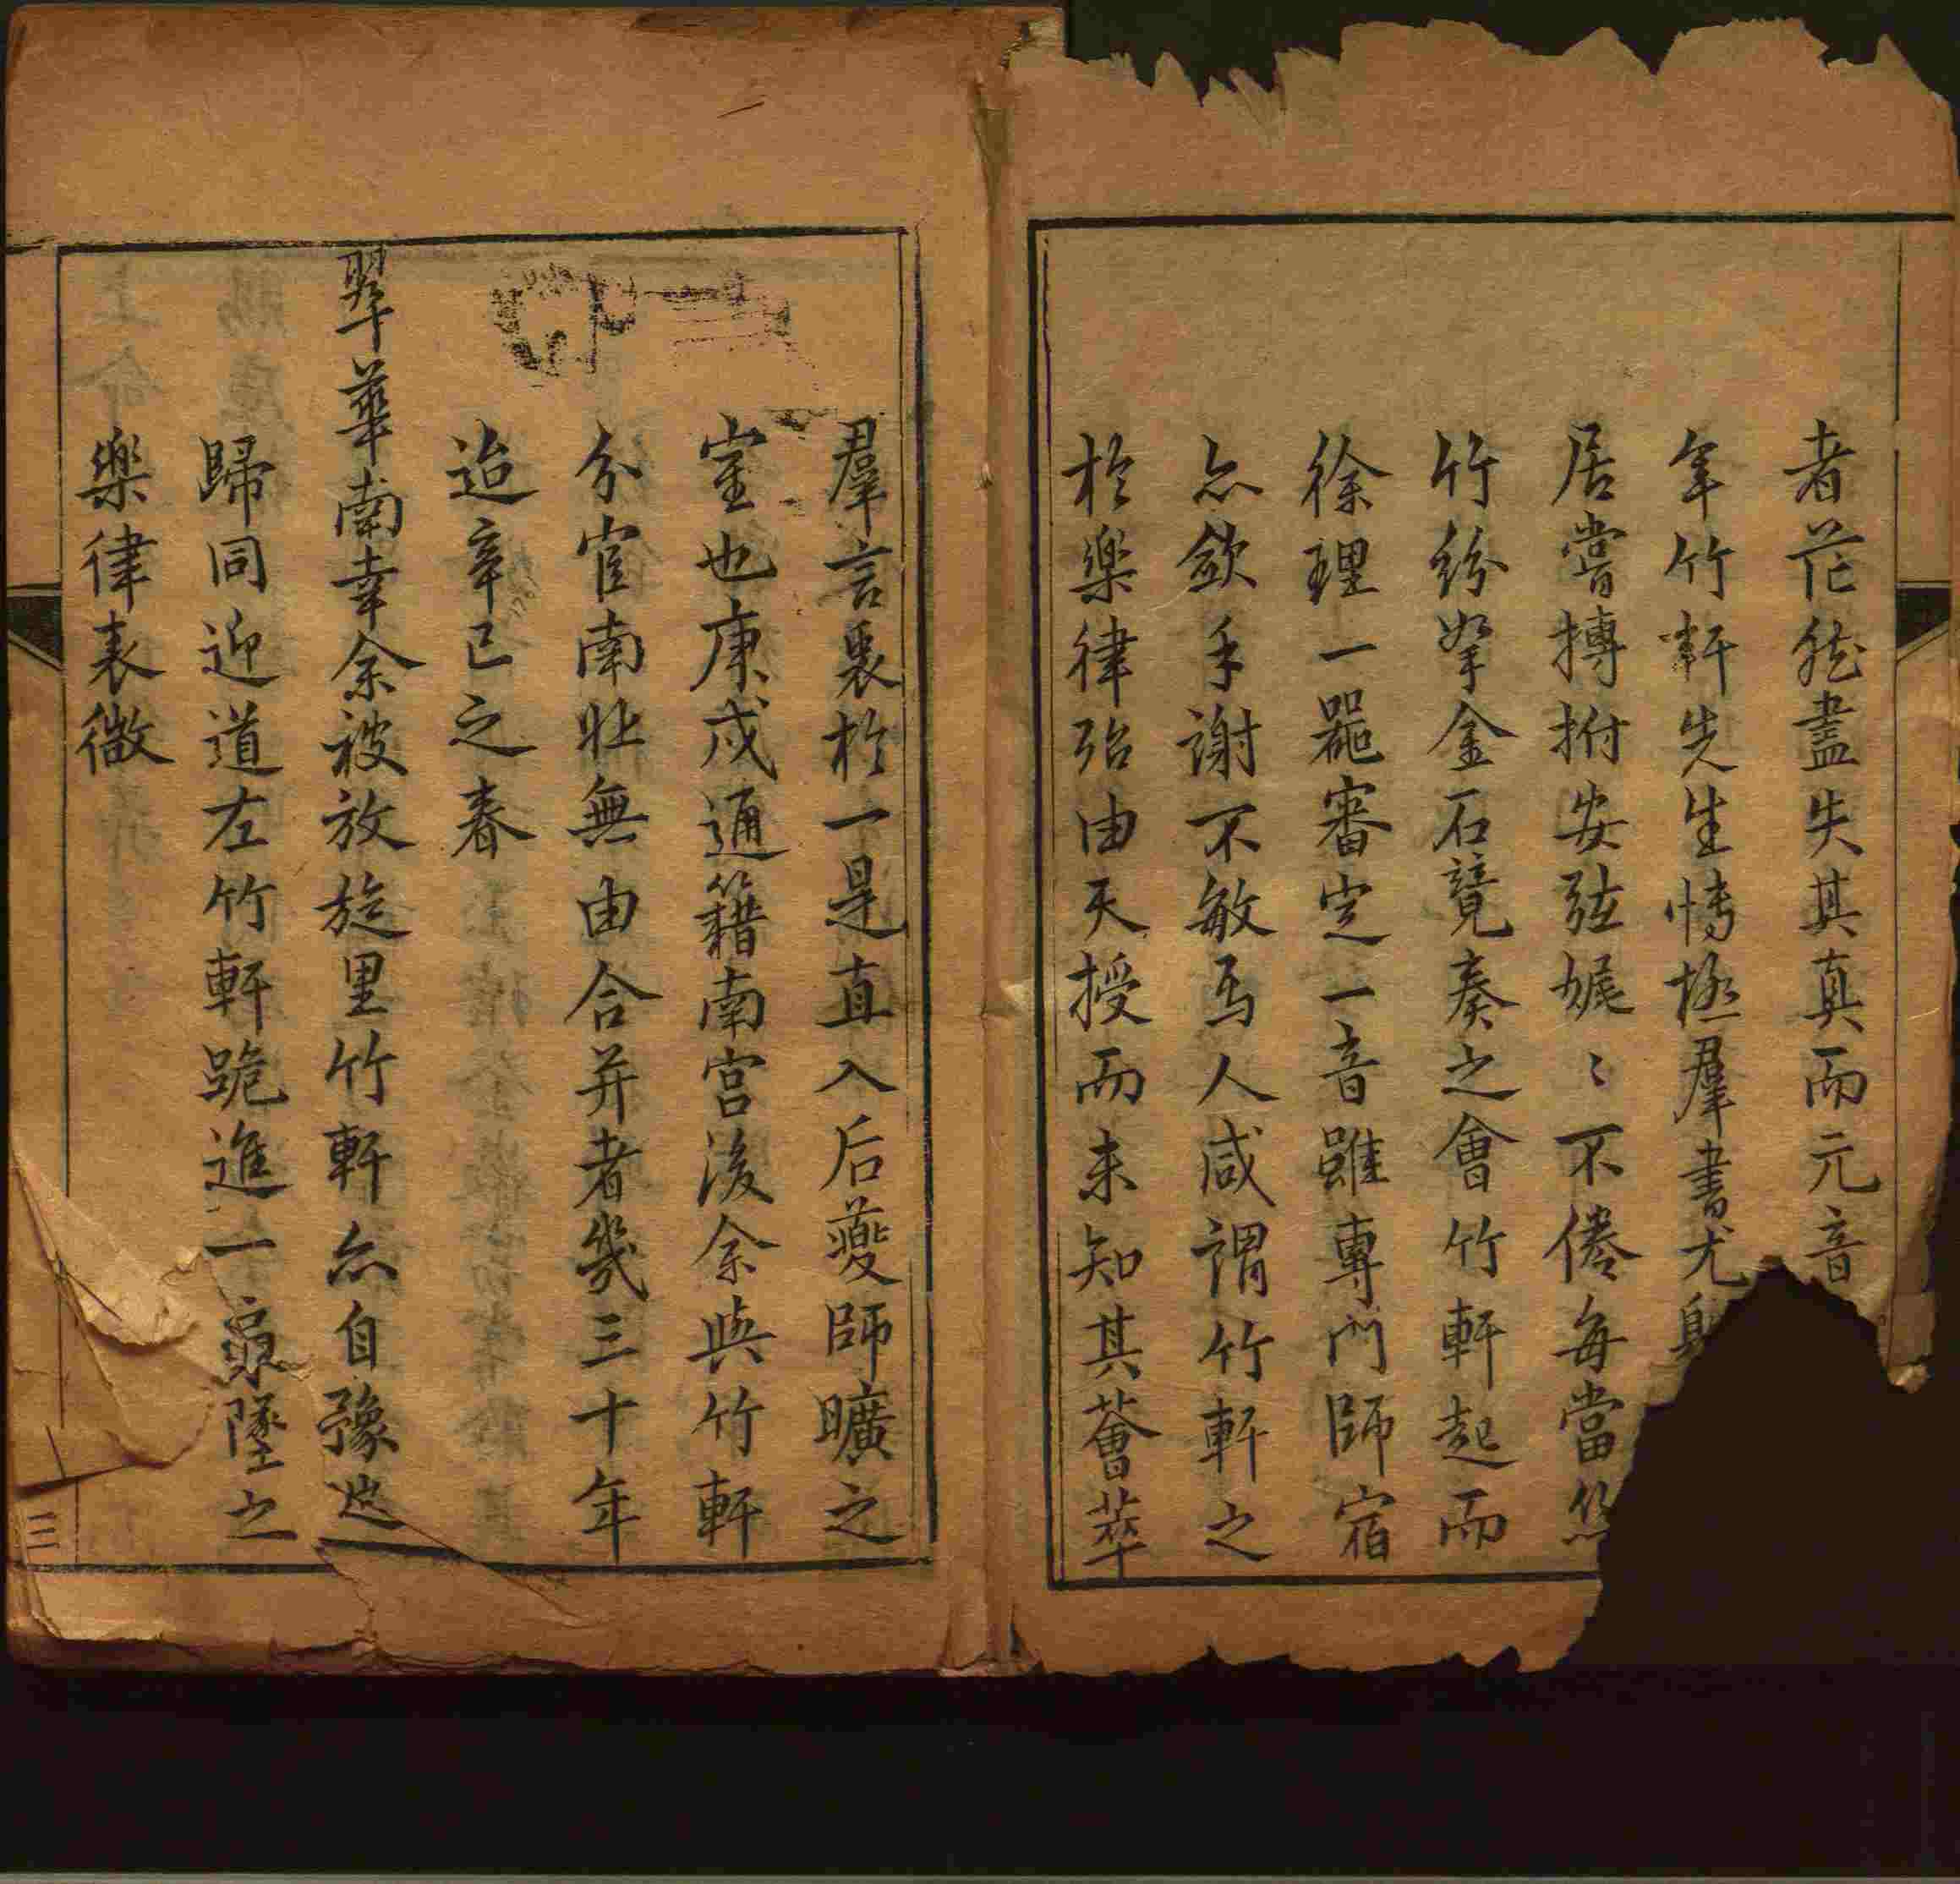 者茫然盡失其真而元音
年竹軒先生博極羣書尤
居嘗搏拊安弦娓〻不倦每當絲
竹紛拏金石競奏之會竹軒起而
徐理一器審定一音雖專門師宿
亦斂手謝不敏焉人咸謂竹軒之
於樂律殆由天授而未知其薈萃
羣言裏於一是直入后夔師曠之
室也庚戌通籍南宮後余與竹軒
分官南北無由合并者幾三十年
迨辛巳之春
翠華南幸余被放旋里竹軒亦自豫
歸同迎道左竹軒跪進一 墜之
樂律表微
三